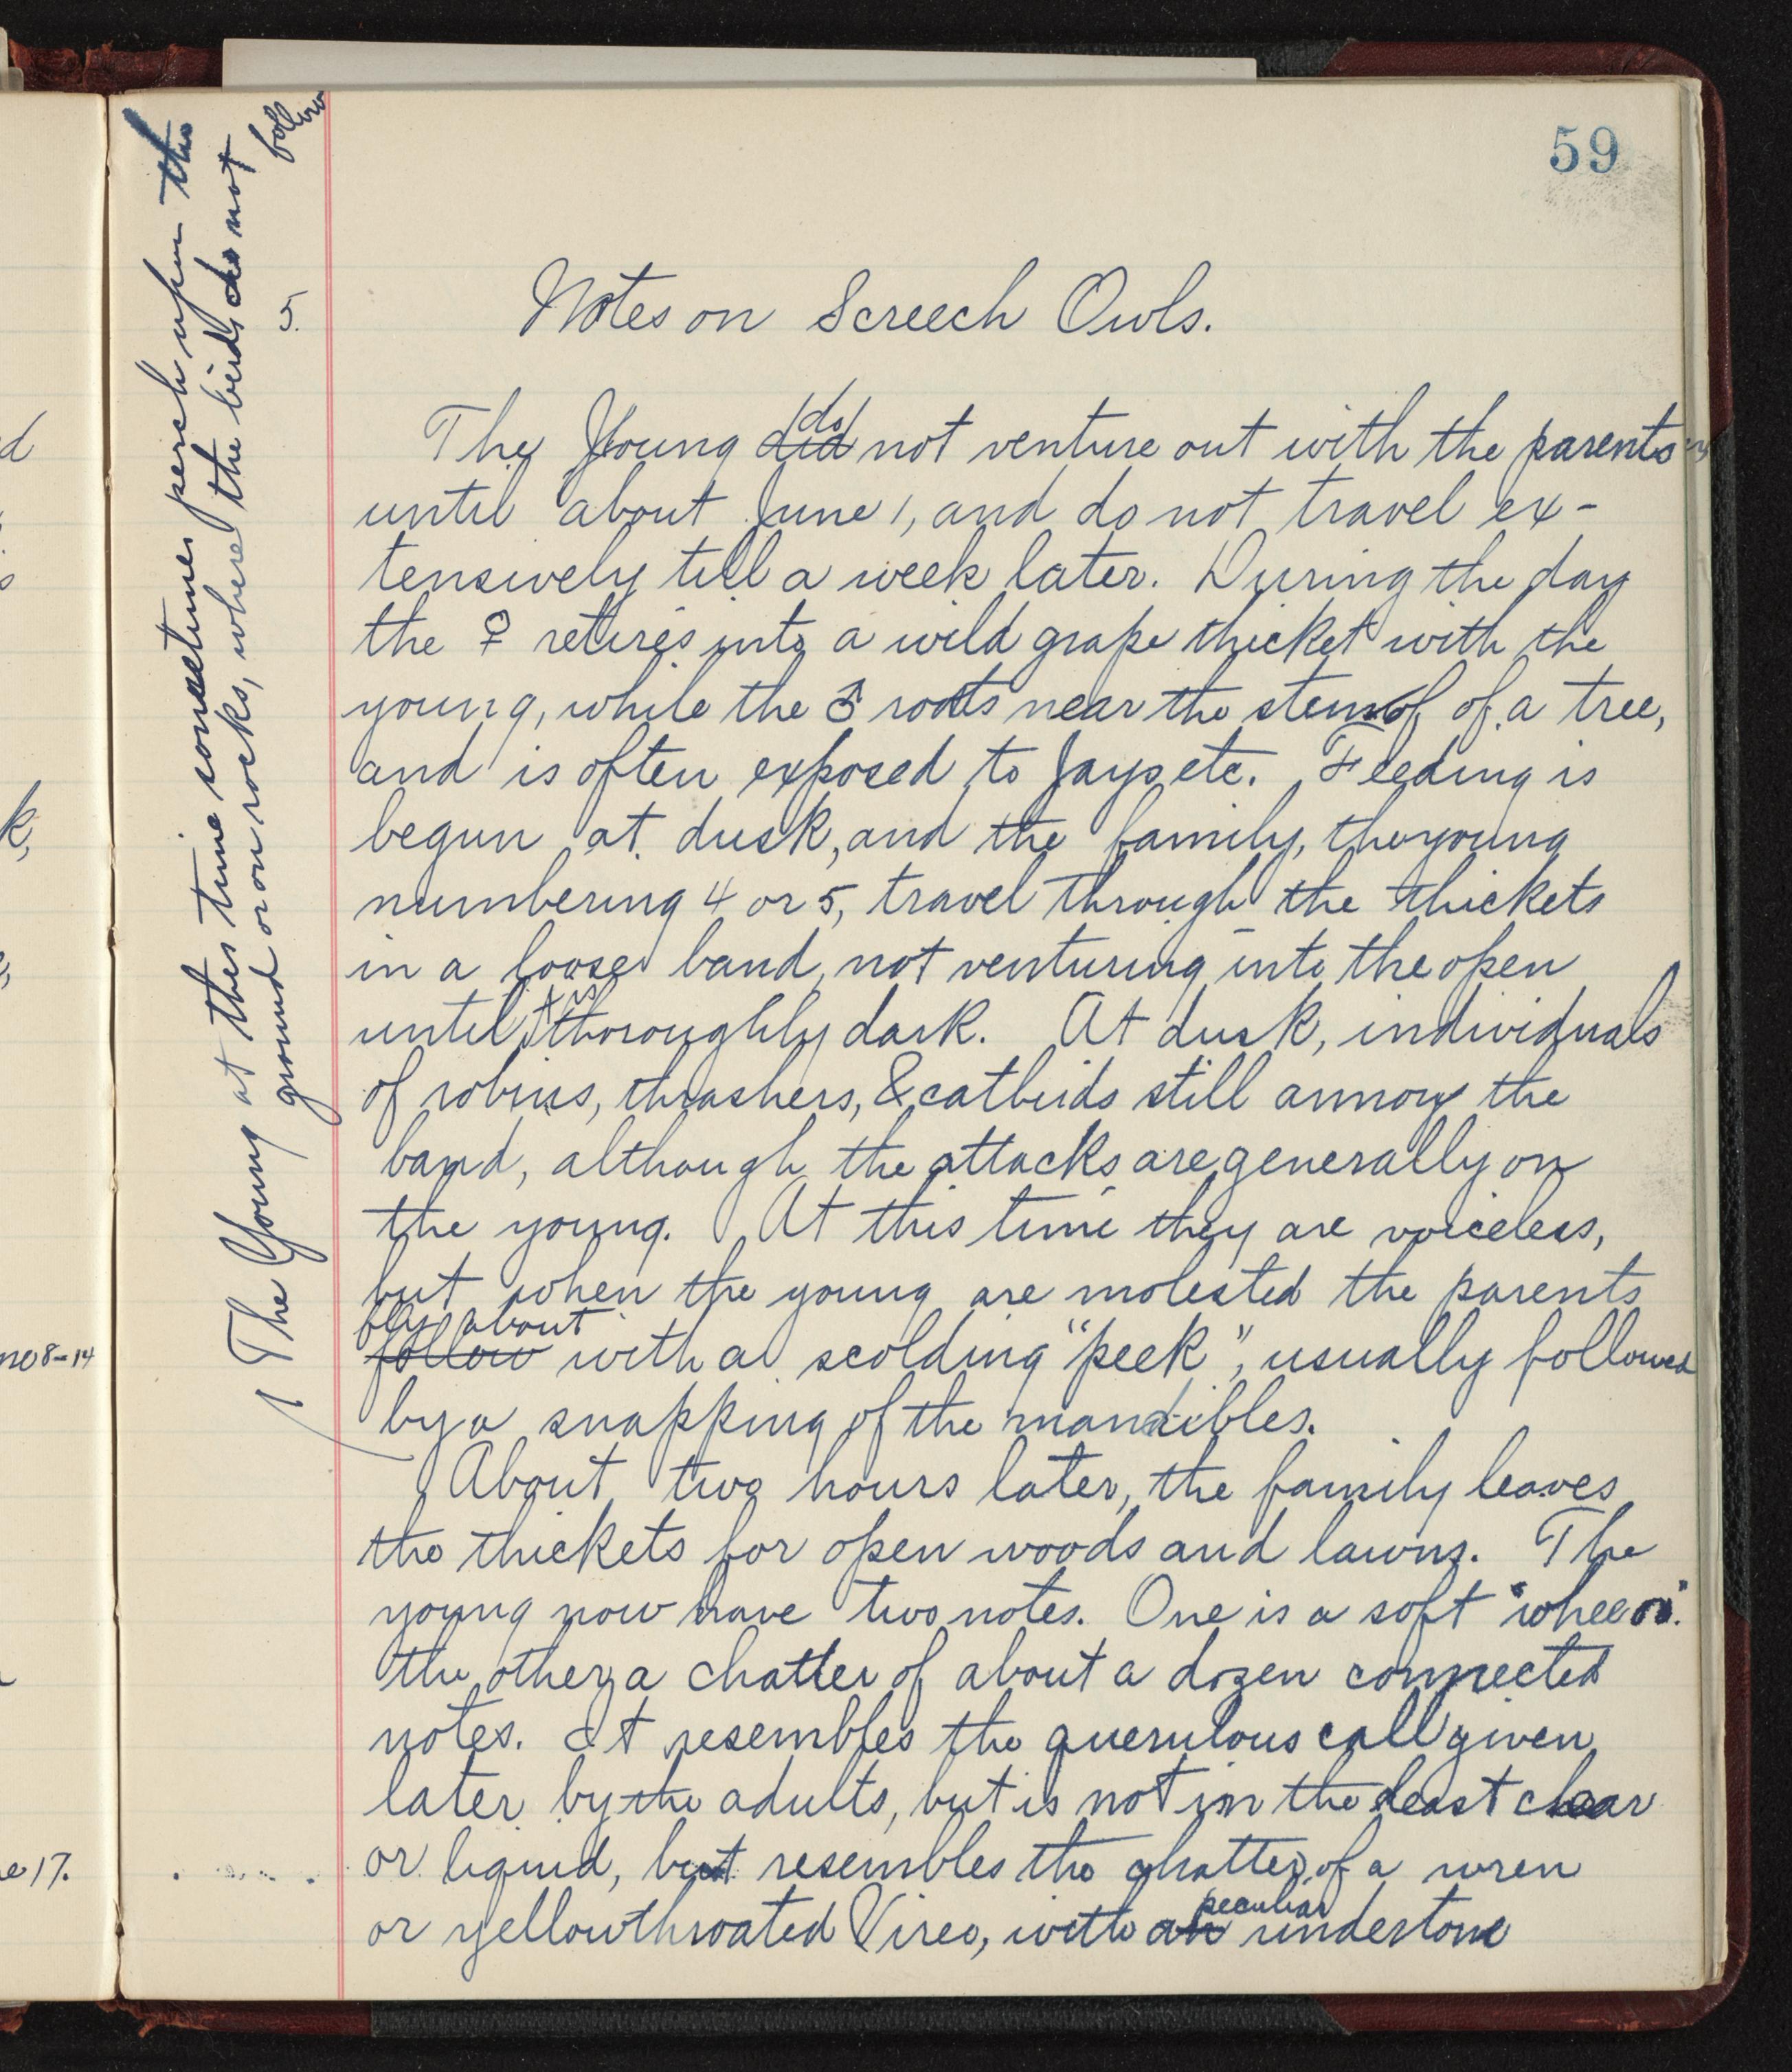 59
Notes on Screech Owls.
The Young did do not venture out with the parents
until about June 1, and do not travel ex-
tensively till a week later. During the day
the ♀ retires into a wild grape thicket with the
young, while the ♂ roosts near the stem of a tree,
and is often exposed to Jays etc. Feeding is
begun at dusk, and the family, the young
numbering 4 or 5, travel through the thickets
in a loose band, not venturing into the open
until tis thoroughly dark. At dusk, individuals
of robins, thrashers, & catbirds still annoy the
band, although the attacks are generally on
the young. At this time they are voiceless,
but when the young are molested the parents
follow fly about with a scolding "peek", usually followed
by a snapping of the mandibles.
About two hours later, the family leaves
the thickets for open woods and lawns. The
young now have two notes. One is a soft
the other, a chatter of about a dozen connected
notes. It resembles the querulous call given
later by the adults, but is not in the least clear
or liquid, but resembles the chatter of a wren
or yellowthroated Vireo, with a peculiar undertone
The Young at this time sometimes perch upon the
ground or on rocks, where the birds do not
follow
d
k,
8-14
17.